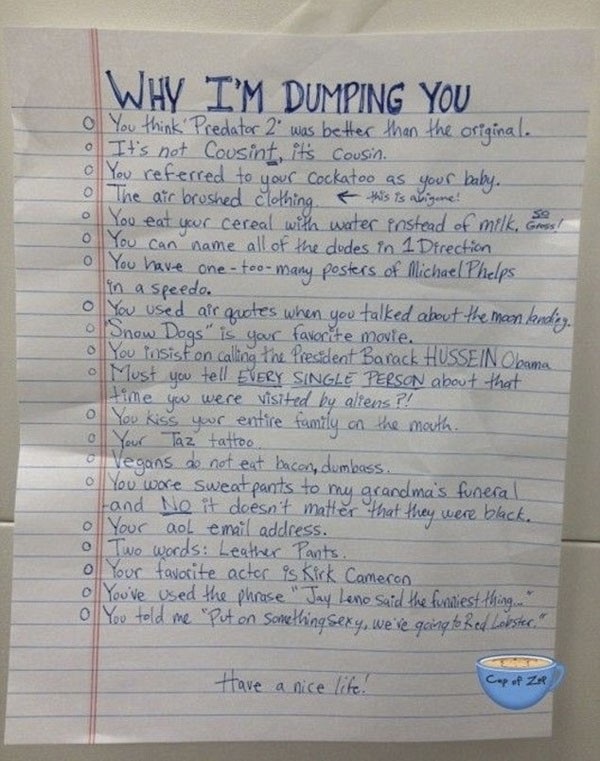 WHY I'M DUMPING YOU
o You think 'Predator 2' was better than the original.
o It's not Cousint, it's Cousin.
o You referred to your Cockatoo as your baby.
o The air brushed clothing ← this is a bigone!
o You eat your cereal with water instead of milk. SO Gross!
o You can name all of the dudes in 1 Direction
o You have one-too-many posters of Michael Phelps
in a speedo.
o You used air quotes when you talked about the moon landing.
o "Snow Dogs" is your favorite movie.
o You insist on calling the President Barack HUSSEIN Obama
o Must you tell EVERY SINGLE PERSON about that
time you were visited by aliens?!
o You kiss your entire family on the mouth.
o Your Taz tattoo
o Vegans do not eat bacon, dumbass.
o You wore sweatpants to my grandma's funeral
and NO it doesn't matter that they were black.
o Your aol email address.
o Two words: Leather Pants.
o Your favorite actor is Kirk Cameron
o You've used the phrase "Jay Leno said the funniest thing..."
o You told me "Put on something sexy, we're going to Red Lobster."
Have a nice life!
Cup of Zup